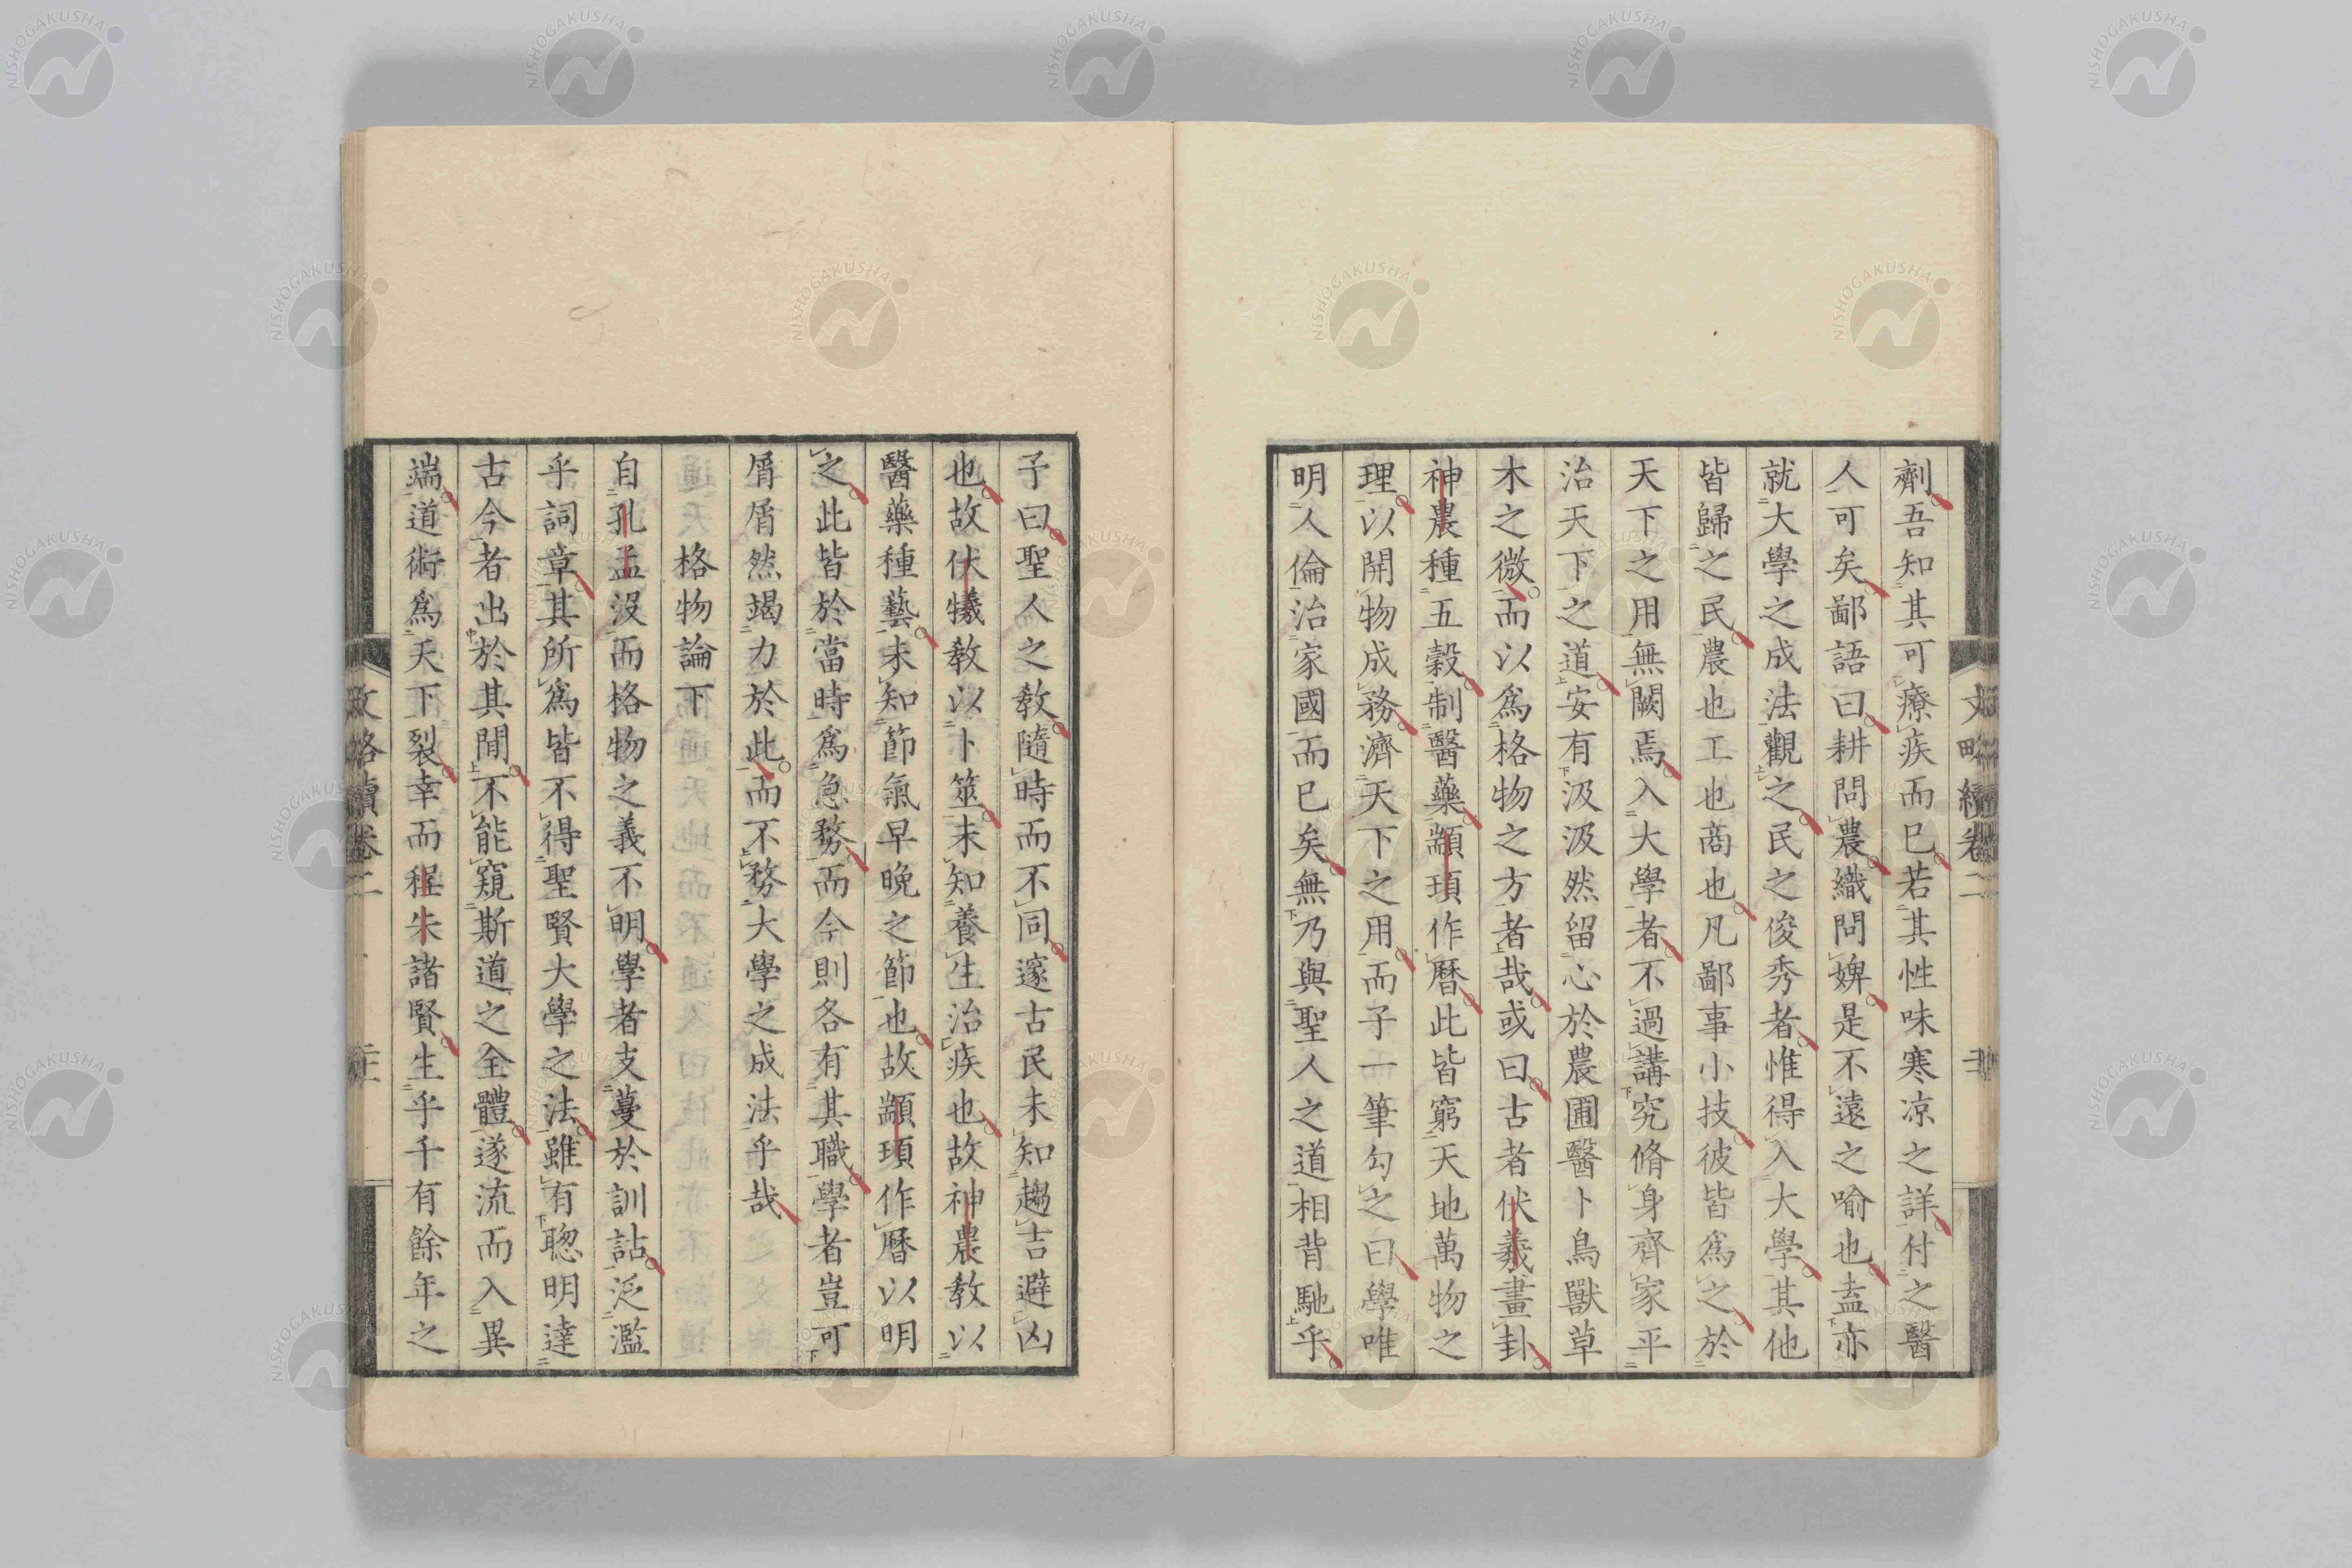 劑吾知其可療疾而已若其性味寒凉之詳付之醫
人可矣鄙語曰耕問農織問婢是不遠之喻也盍亦
就大學之成法觀之民之俊秀者惟得入大學其他
皆歸之民農也工也商也凡鄙事小技彼皆爲之於
天下之用無闕焉入大學者不過講究脩身齊家平
治天下之道安有汲汲然留心於農圃醫卜鳥獸草
木之微而以爲格物之方者哉或曰古者伏羲畫卦
神農種五穀制醫藥顓頊作曆此皆窮天地萬物之
理以開物成務濟天下之用而子一筆勾之曰學唯
明人倫治家國而已矣無乃與聖人之道相背馳乎
子曰聖人之教隨時而不同邃古民未知趨吉避凶
也故伏犧教以卜筮未知養生治疾也故神農教以
醫藥種藝未知節氣早晩之節也故顓頊作曆以明
之此皆於當時爲急務而今則各有其職學者豈可
屑屑然竭力於此而不務大學之成法乎哉
格物論下
自孔孟沒而格物之義不明學者支蔓於訓詁泛濫
乎詞章其所爲皆不得聖賢大學之法雖有聰明達
古今者出於其間不能窺斯道之全體遂流而入異
端道術爲天下裂幸而程朱諸賢生乎千有餘年之
文略續卷二
NISHOGAKUSHA